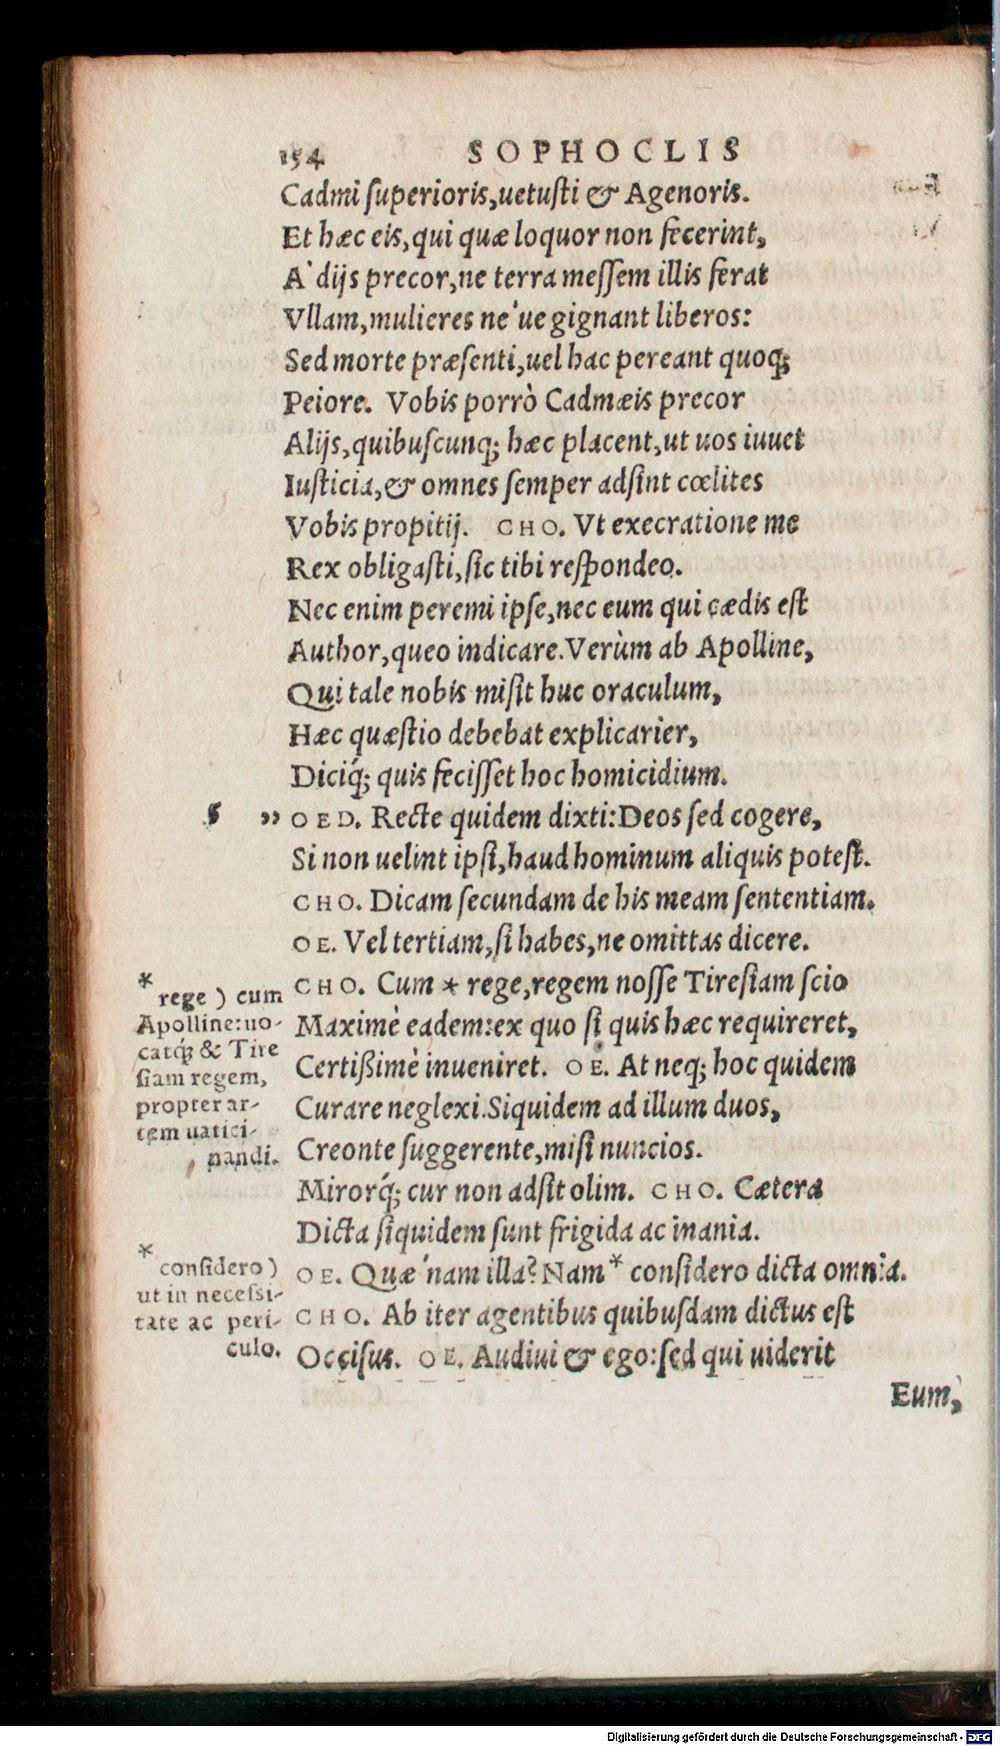 154 SOPHOCLIS
Cadmi ſuperioris,uetuſti & Agenoris.
Et hæc eis,qui quæ loquor non fecerint,
A' dijs precor,ne terra meſſem illis ferat
Vllam,mulieres ne'ue gignant liberos:
Sed morte præſenti,uel hac pereant quoq;
Peiore. Vobis porrò Cadmæis precor
Alijs,quibuſcunq; hæc placent,ut uos iuuet
Iuſticia,& omnes ſemper adſint cœlites
Vobis propitij. CHO. Vt execratione me
Rex obligaſti,ſic tibi reſpondeo.
Nec enim peremi ipſe,nec eum qui cædis eſt
Author,queo indicare.Verùm ab Apolline,
Qui tale nobis miſit huc oraculum,
Hæc quæſtio debebat explicarier,
Diciq́; quis feciſſet hoc homicidium.
5 ,, OED. Recte quidem dixti:Deos ſed cogere,
Si non uelint ipſi,haud hominum aliquis poteſt.
CHO. Dicam ſecundam de his meam ſententiam.
OE. Vel tertiam,ſi habes,ne omittas dicere.
CHO. Cum * rege,regem noſſe Tireſiam ſcio
Maximè eadem:ex quo ſi quis hæc requireret,
Certißimè inueniret. OE. At neq; hoc quidem
Curare neglexi.Siquidem ad illum duos,
Creonte ſuggerente,miſi nuncios.
Mirorq́; cur non adſit olim. CHO. Cætera
Dicta ſiquidem ſunt frigida ac inania.
OE. Quæ'nam illa? Nam * conſidero dicta omnia.
CHO. Ab iter agentibus quibuſdam dictus eſt
Occiſus. OE. Audiui & ego:ſed qui uiderit
Eum,
*
rege ) cum
Apolline:uo-
catq́; & Tire
ſiam regem,
propter ar-
tem uatici-
nandi.
*
conſidero )
ut in neceſsi-
tate ac peri-
culo.
Digitalisierung gefördert durch die Deutsche Forschungsgemeinschaft - DFG